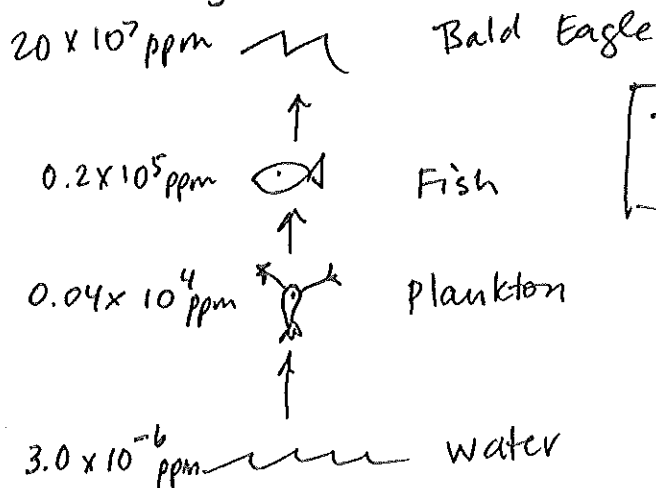 20 x 10⁷ ppm Bald Eagle
0.2 x 10⁵ ppm Fish
0.04 x 10⁴ ppm plankton
3.0 x 10⁻⁶ ppm water